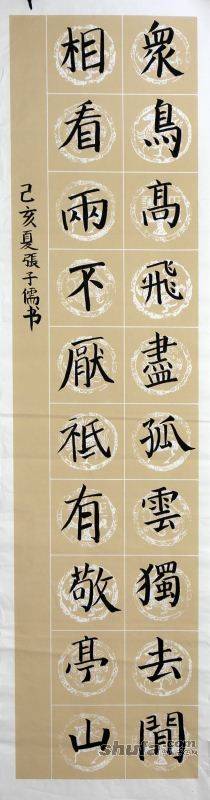 衆鳥髙飛盡孤雲獨去閒
相看兩不厭祗有敬亭山
己亥夏張子儒书